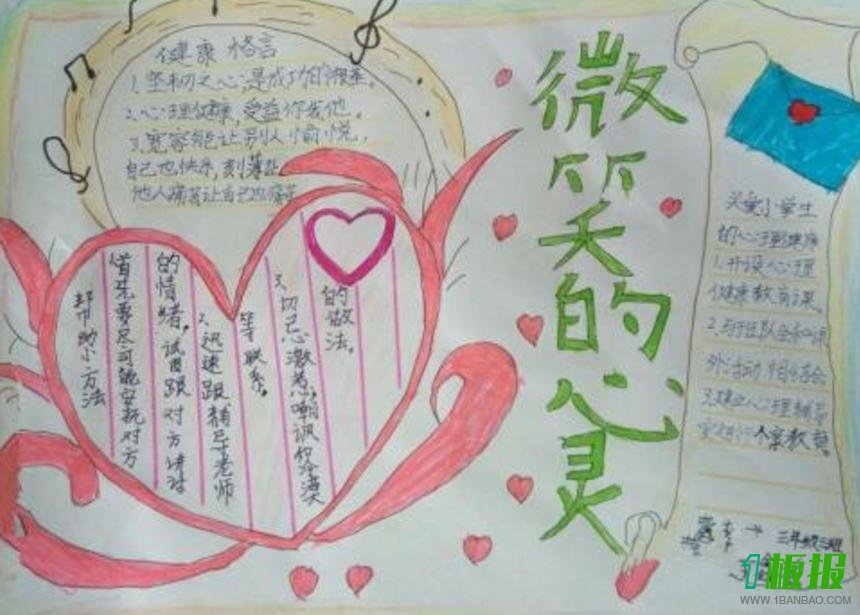 健康格言
1.坚韧之心,是成功的根基。
2.心理健康,受益你我他。
3.宽容能让别人愉悦,
自己也快乐,刻薄让
他人痛苦让自己也痛苦
微笑的心灵
帮助小方法
首先要尽可能安抚对方
的情绪,试图跟对方讲对
2、迅速跟辅导老师
等联系。
3、切忌激惹,嘲讽和冷漠
的做法。
关爱小学生
的心理健康
1.开设心理
健康教育课。
2.与班队会和课
外活动相结合
3.建立心理辅导
室进行个案教育。
三年级三班
1板报
WWW.1BANBAO.COM